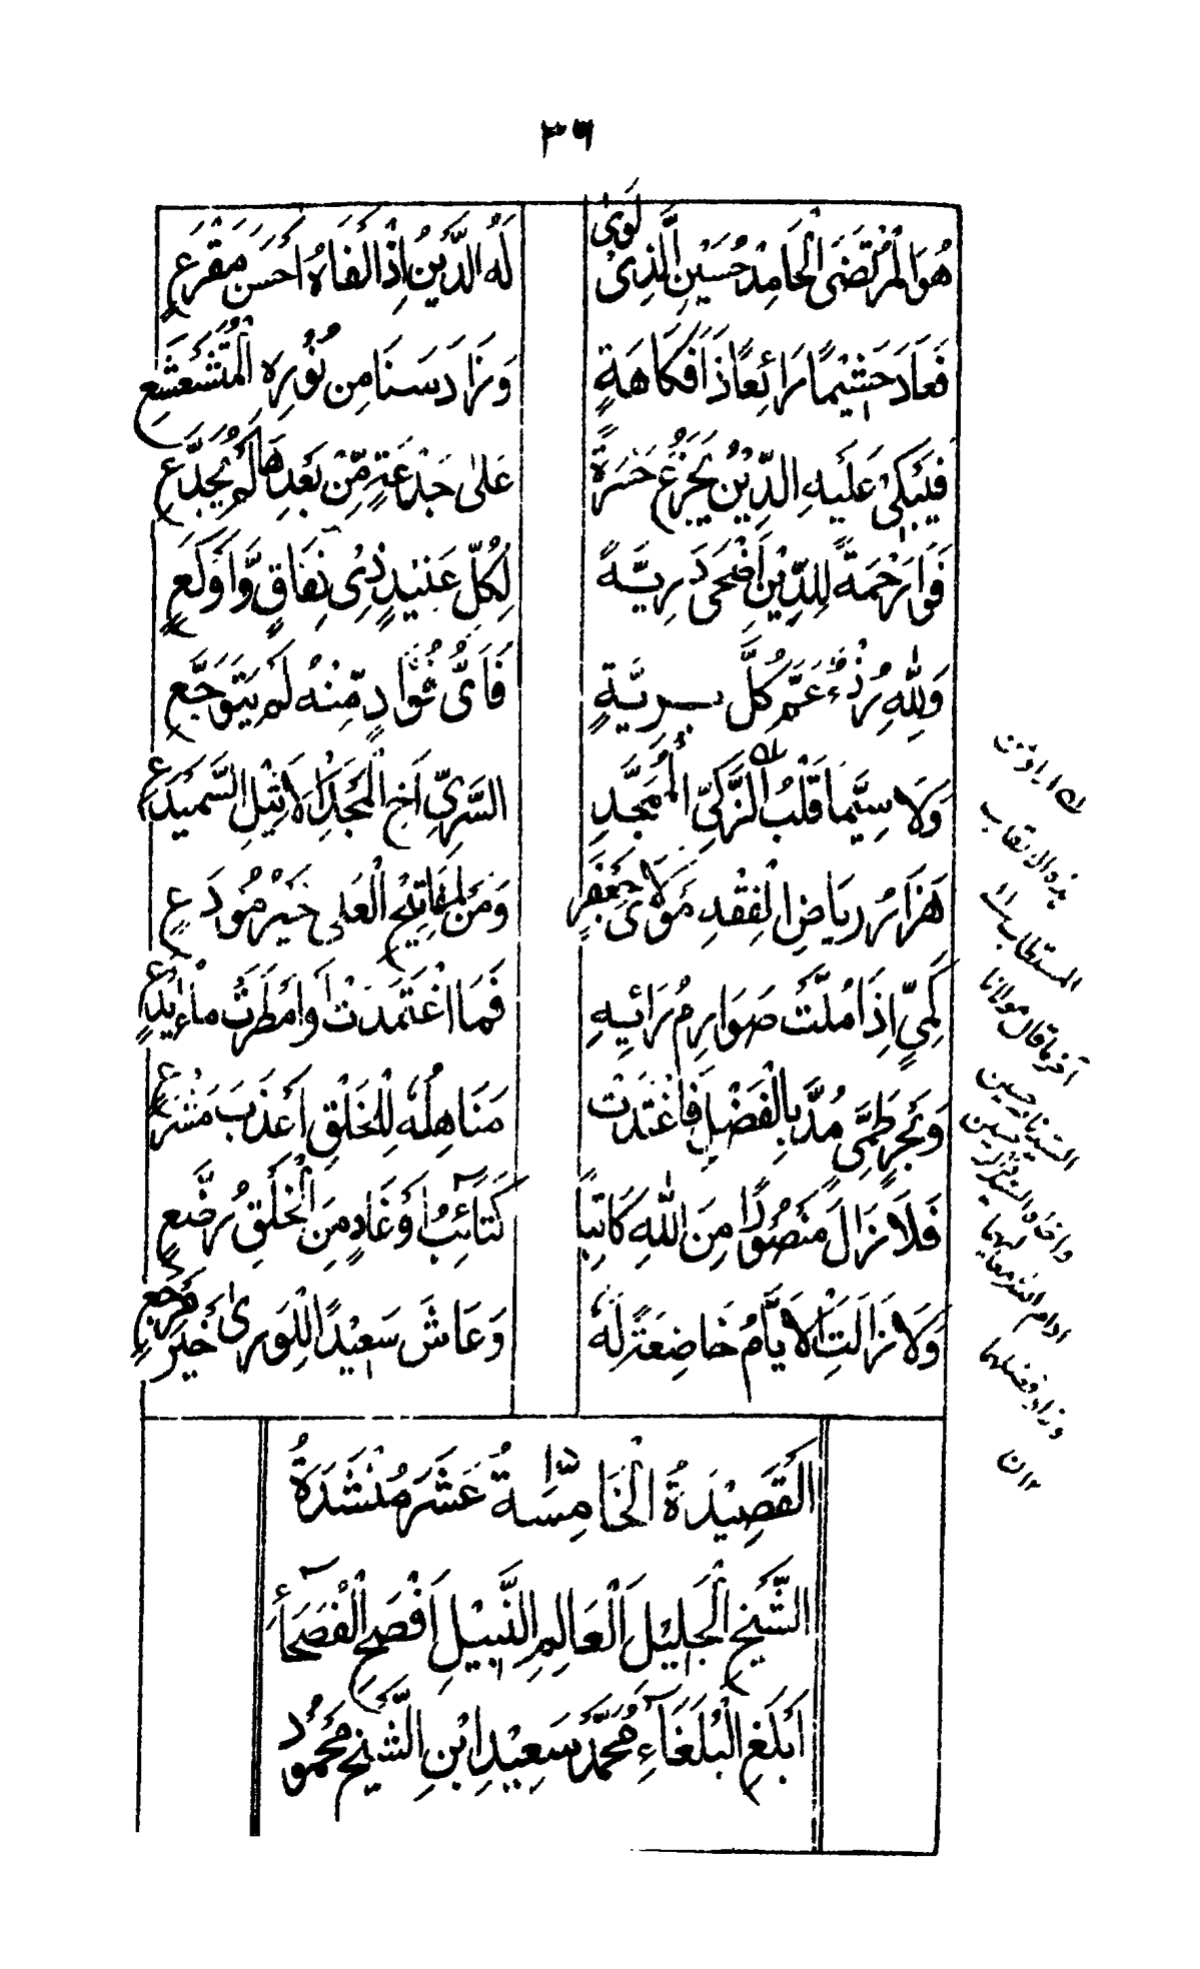 ٣٦
هُوَ الْمُرْتَضَى الْحَامِدْ حُسَيْنِ الَّذِيْ لَوَى
لَهُ الدَّيْنُ إِذْ الفَاهُ اَحْسَنَ مَقْرَعٍ
فَعَادَ حَثِيْمًا رَائِعًا ذَا فَكَاهَةٍ
وَزَادَ سَنَا مِن نُوْرِهِ الْمُتَشَعْشِعِ
فَيَبْكِيْ عَلَيْهِ الدِّيْنُ يَجْزَعُ حَسْرَةً
عَلٰى جَدْعَةٍ مِّنْ بَعْدِهَا لَمْ يُجَدَّعِ
فَوَا رَحْمَةً لِلدِّيْنِ اَضْحَى دَرِيَّةً
لِكُلِّ عَنِيْدٍ ذِيْ نِفَاقٍ وَّاَوْلَعٍ
وَلِلّٰهِ رُزْءٌ عَمَّ كُلَّ بَرِيَّةٍ
فَاَىُّ فُؤَادٍ مِّنْهُ لَمْ يَتَوَجَّعِ
وَلَا سِيَّمَا قَلْبُ الزَّكِيِّ الْمُمَجَّدِ
السَّرِيِّ اَخِ الْمَجْدِ الْاَثِيْلِ السَّمَيْدَعِ
هَزَارُ رِيَاضِ الْفِقْهِ مَوْلَايَ جَعْفَرٍ
وَمَنْ لِمَفَاتِيْحِ الْعَلٰى خَيْرُ مُودَعٍ
كَمِيٍّ اِذَا سُلَّتْ صَوَارِمُ رَائِيِهِ
فَمَا اغْتَمَدَتْ اَوْ اَمْطَرَتْ مَاءَ
وَبَحْرٍ طَمَّى مُدَّ بِالْفَضْلِ فَاغْتَدَتْ
مَنَاهِلُهُ لِلْخَلْقِ اَعْذَبَ مَشْرَعٍ
فَلَا زَالَ مَنْصُوْرًا مِنَ اللّٰهِ كَاتِبًا
كَتَائِبُ اَوْغَادٍ مِنَ الْخَلْقِ رُضَّعٍ
وَلَا زَالَتِ الْاَيَّامُ خَاضِعَةً لَهُ
وَعَاشَ سَعِيْدًا لِلْوَرٰى خَيْرَ مَرْجَعٍ
له اراد من
بذو الالقاب
المستطاب ١١
آخر ما قال مولانا
السيد ناصر حسين
واخاه السيد ذاكر حسين
ادام الله معاليهما
وزاد فضلهما
١٢ ن
الْقَصِيْدَةُ الْخَامِسَةُ عَشَرَ مُنْشَدَةُ
الشَّيْخِ الْجَلِيْلِ الْعَالِمِ النَّبِيْلِ اَفْصَحِ الْفُصَحَاءِ
اَبْلَغِ الْبُلَغَاءِ مُحَمَّدْ سَعِيْدِ ابْنِ الشَّيْخِ مَحْمُوْد